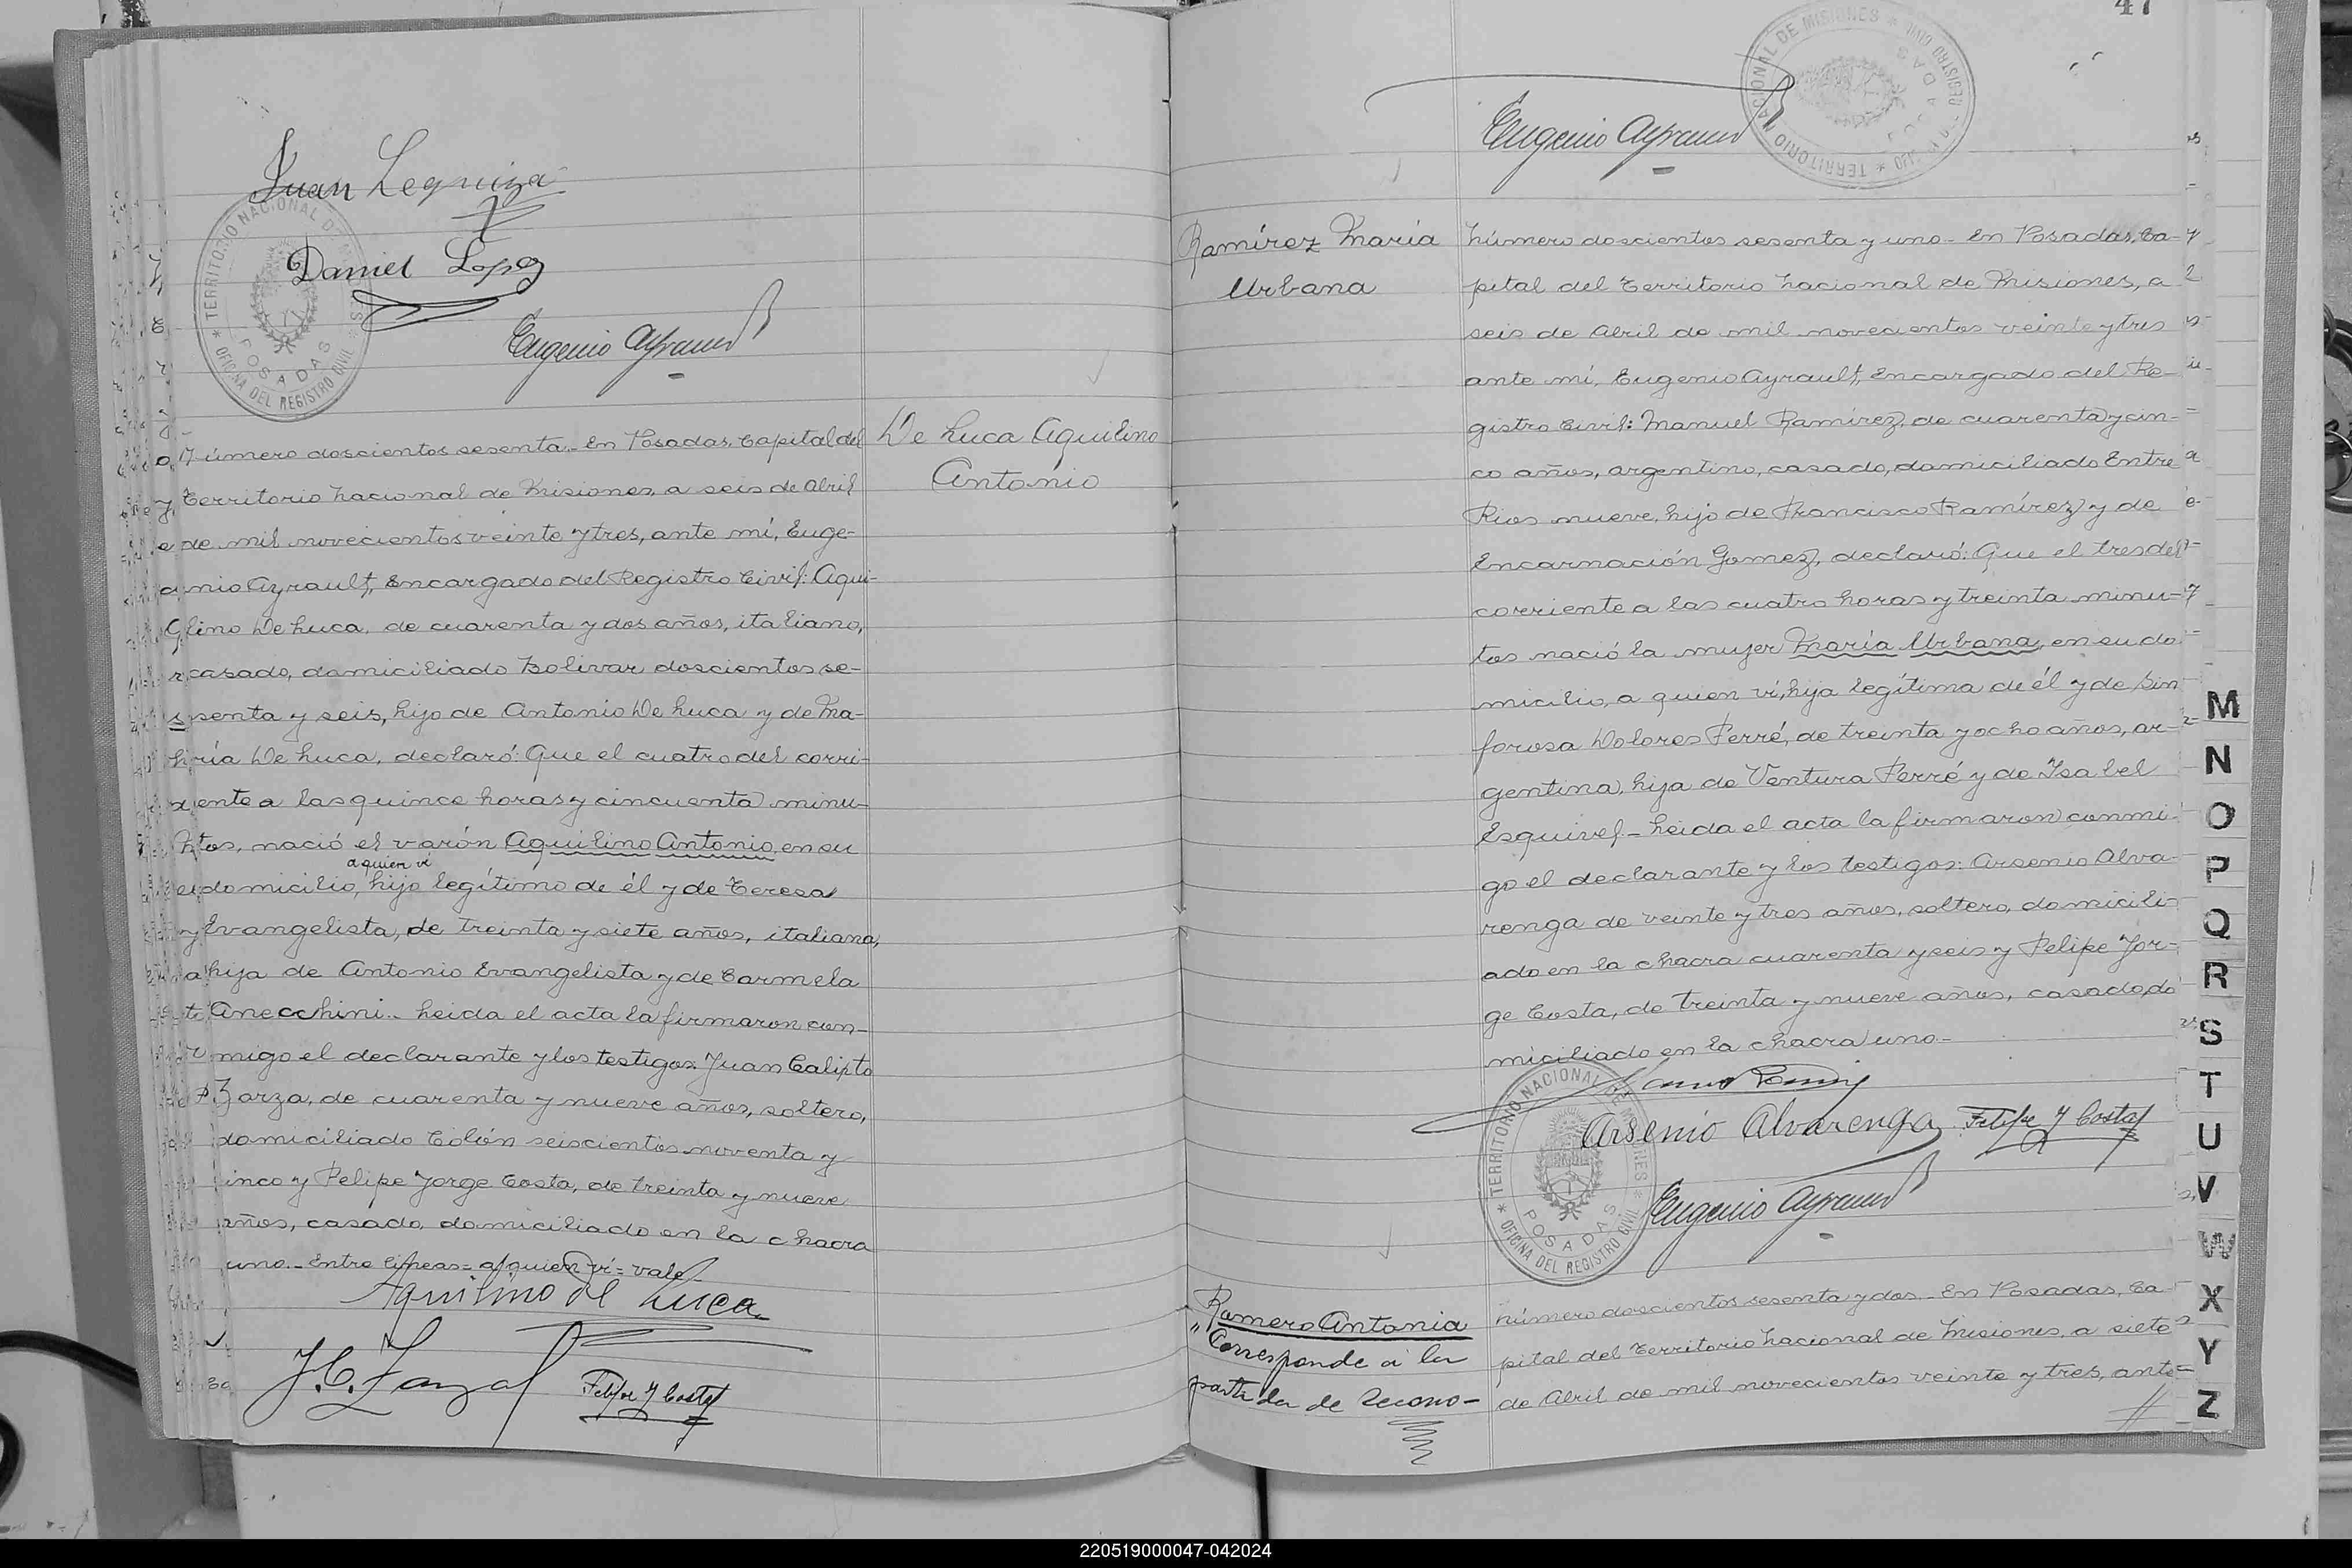 Juan Leguiza
Daniel Lopez
Eugenio Ayrault
TERRITORIO NACIONAL DE MISIONES * OFICINA DEL REGISTRO CIVIL *
POSADAS
De Luca Aquilino
Antonio
Número doscientos sesenta.- En Posadas, Capital del
Territorio Nacional de Misiones, a seis de Abril
de mil novecientos veinte y tres, ante mí, Euge-
nio Ayrault, Encargado del Registro Civil: Aqui-
lino De Luca, de cuarenta y dos años, italiano,
casado, domiciliado Bolivar doscientos se-
senta y seis, hijo de Antonio De Luca y de Ma-
ría De Luca, declaró: Que el cuatro del corri-
ente a las quince horas y cincuenta minu-
tos, nació el varón Aquilino Antonio, en su
a quien ví
domicilio, hijo legítimo de él y de Teresa
Evangelista, de treinta y siete años, italiana,
hija de Antonio Evangelista y de Carmela
Anecchini.- Leida el acta la firmaron con-
migo el declarante y los testigos: Juan Calipto
Zarza, de cuarenta y nueve años, soltero,
domiciliado Colón seiscientos noventa y
inco y Felipe Jorge Costa, de treinta y nueve
años, casado, domiciliado en la chacra
uno.- Entre líneas= a quien ví= vale-
Aquilino De Luca
J. C. Zarza
Felipe J Costa
47
Eugenio Ayrault
TERRITORIO NACIONAL DE MISIONES * OFICINA DEL REGISTRO CIVIL *
POSADAS
Ramírez María
Urbana
Número doscientos sesenta y uno- En Posadas, Ca-
pital del Territorio Nacional de Misiones, a
seis de Abril de mil novecientos veinte y tres
ante mí, Eugenio Ayrault, Encargado del Re-
gistro Civil: Manuel Ramírez, de cuarenta y cin-
co años, argentino, casado, domiciliado Entre
Rios nueve, hijo de Francisco Ramírez y de
Encarnación Gomez, declaró: Que el tres del
corriente a las cuatro horas y treinta minu-
tos nació la mujer María Urbana, en su do
micilio, a quien ví, hija legítima de él y de Sin
forosa Dolores Ferré, de treinta y ocho años, ar-
gentina, hija de Ventura Ferré y de Isabel
Esquivel- Leida el acta la firmaron conmi-
go el declarante y los testigos: Arsenio Alva-
renga de veinte y tres años, soltero, domicili-
ado en la chacra cuarenta y seis y Felipe Jor-
ge Costa, de treinta y nueve años, casado, do
miciliado en la chacra uno-
Arsenio Alvarenga Felipe J Costa
Eugenio Ayrault
TERRITORIO NACIONAL DE MISIONES * OFICINA DEL REGISTRO CIVIL *
POSADAS
Ramero Antonia
"Corresponde a la
partida de recono-
Número doscientos sesenta y dos.- En Posadas, Ca-
pital del Territorio Nacional de Misiones, a siete
de Abril de mil novecientos veinte y tres, ante
M
N
O
P
Q
R
S
T
U
V
W
X
Y
Z
220519000047-042024